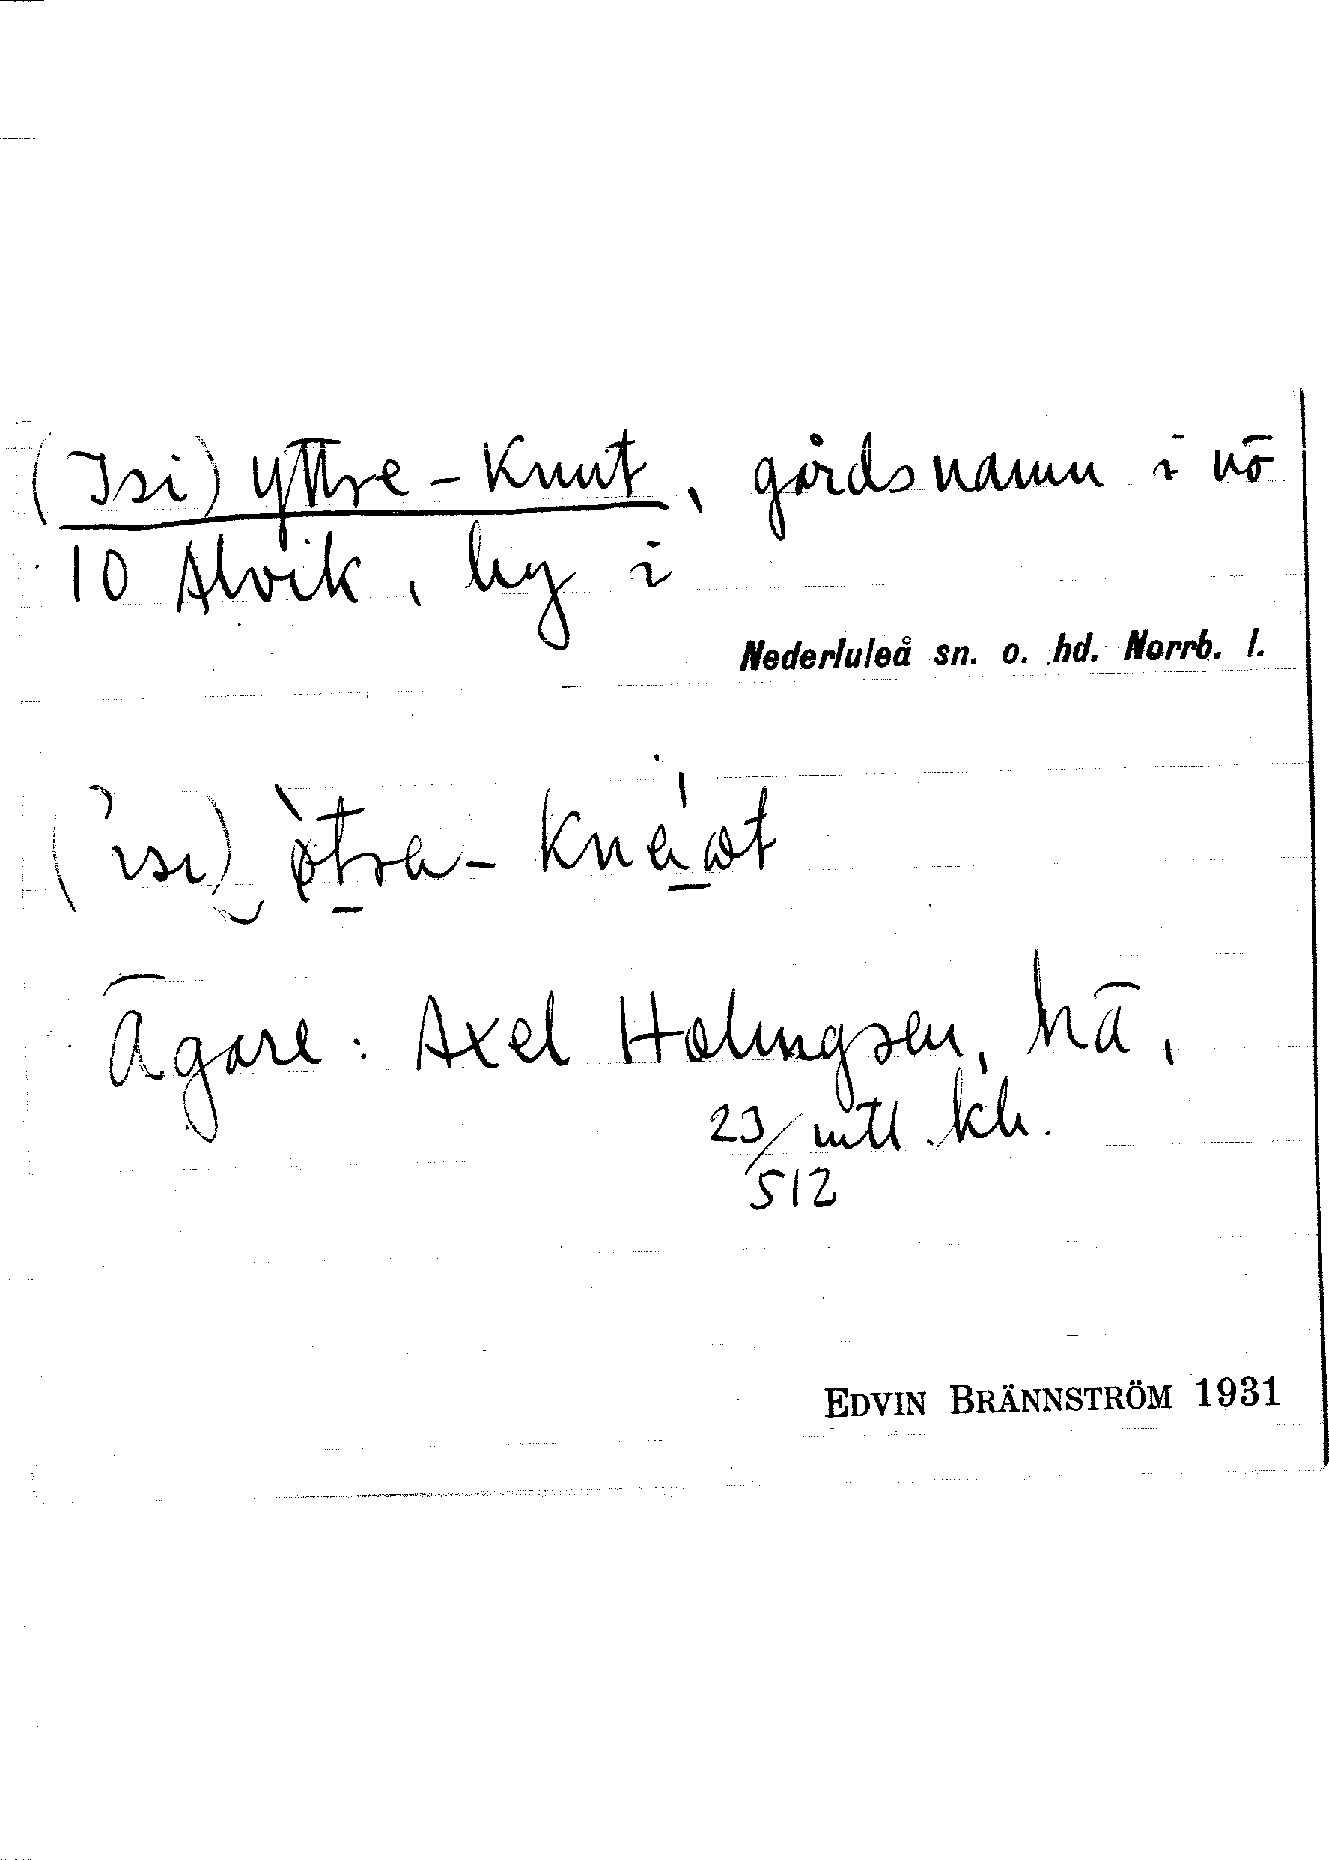 (Isi) yttre-Knut, gårdsnamn i nö
10 Alvik, by i
Nederluleå sn. o. hd. Norrb. l.
Ägare: Axel Holmgren, hä,
23/512 mtl kh.
EDVIN BRÄNNSTRÖM 1931